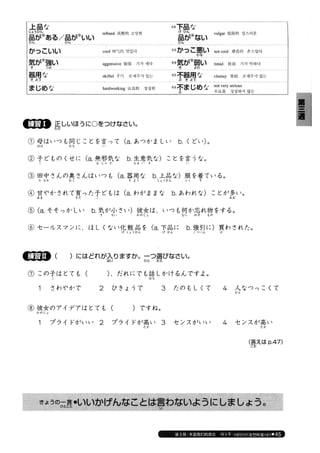 上品な refined 高雅的 고상한
品がある／品がいい
下品な vulgar 低俗的 상스러운
品がない
かっこいい cool 帅气的 멋있다
かっこ悪い not cool 촌스럽다
気が強い aggressive
気が弱い timid
器用な skillful
不器用な clumsy
まじめな hardworking 认真的 성실한
不まじめな not very serious
第三週
練習Ⅰ 正しいほうに○をつけなさい。
① 母はいつも同じことを言って（a. あつかましい b. くどい）。
② 子どものくせに（a. 無邪気な b. 生意気な）ことを言うな。
③ 田中さんの奥さんはいつも（a. 器用な b. 上品な）服を着ている。
④ 甘やかされて育った子どもは（a. わがままな b. あわれな）ことが多い。
⑤（a. そそっかしい b. 気が小さい）彼女は、いつも何か忘れ物をする。
⑥ セールスマンに、ほしくない化粧品を（a. 下品に b. 強引に）買わされた。
練習Ⅱ （ ）にはどれが入りますか。一つ選びなさい。
⑦ この子はとても（ ）、だれにでも話しかけるんですよ。
1 さわやかで 2 ひきょうで 3 たのもしくて 4 人なつっこくて
⑧ 彼女のアイデアはとても（ ）ですね。
1 プライドがいい 2 プライドが高い 3 センスがいい 4 センスが高い
（答えは p.47）
きょうの一言●いいかげんなことは言わないようにしましょう。
45